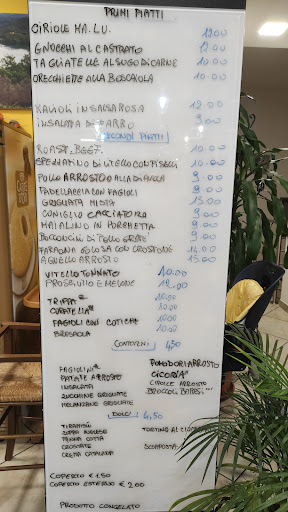 PRIMI PIATTI
CIRIOLE MA.LU. 12.00
GNOCCHI AL CASTRATO 12.00
TAGLIATELLE AL SUGO DI CARNE 10.00
ORECCHIETTE ALLA BOSCAIOLA 10.00
RAVIOLI IN SALSA ROSA 12.00
INSALATA DI FARRO 9.00
SECONDI PIATTI
ROAST-BEEF 10.00
SPEZZATINO DI VITELLO CON PISELLI 10.00
POLLO ARROSTO O ALLA DIAVOLA 9.00
PADELLACCIA CON FAGIOLI 9.00
GRIGLIATA MISTA 15.00
CONIGLIO CACCIATORA 9.00
MAIALINO IN PORCHETTA 9.00
BOCCONCINI DI POLLO 9.00
FARAONA GOLOSA CON CROSTONE 14.00
AGNELLO ARROSTO 15.00
VITELLO TONNATO 10.00
PROSCIUTTO E MELONE 12.00
TRIPPA* 10.00
CORATELLA* 10.00
FAGIOLI CON COTICHE 10.00
BRESAOLA 10.00
CONTORNI 4,50
FAGIOLINI* POMODORI ARROSTO
PATATE ARROSTO CICORIA*
INSALATA CIPOLLE ARROSTO
ZUCCHINE GRIGLIATE BROCCOLI
MELANZANE GRIGLIATE
DOLCI 4,50
TIRAMISÙ TORTINO AL CIOCC
ZUPPA INGLESE
PANNA COTTA
CROSTATE
CREMA CATALANA
COPERTO € 1.50
COPERTO ESTERNO € 2.00
PRODOTTO CONGELATO